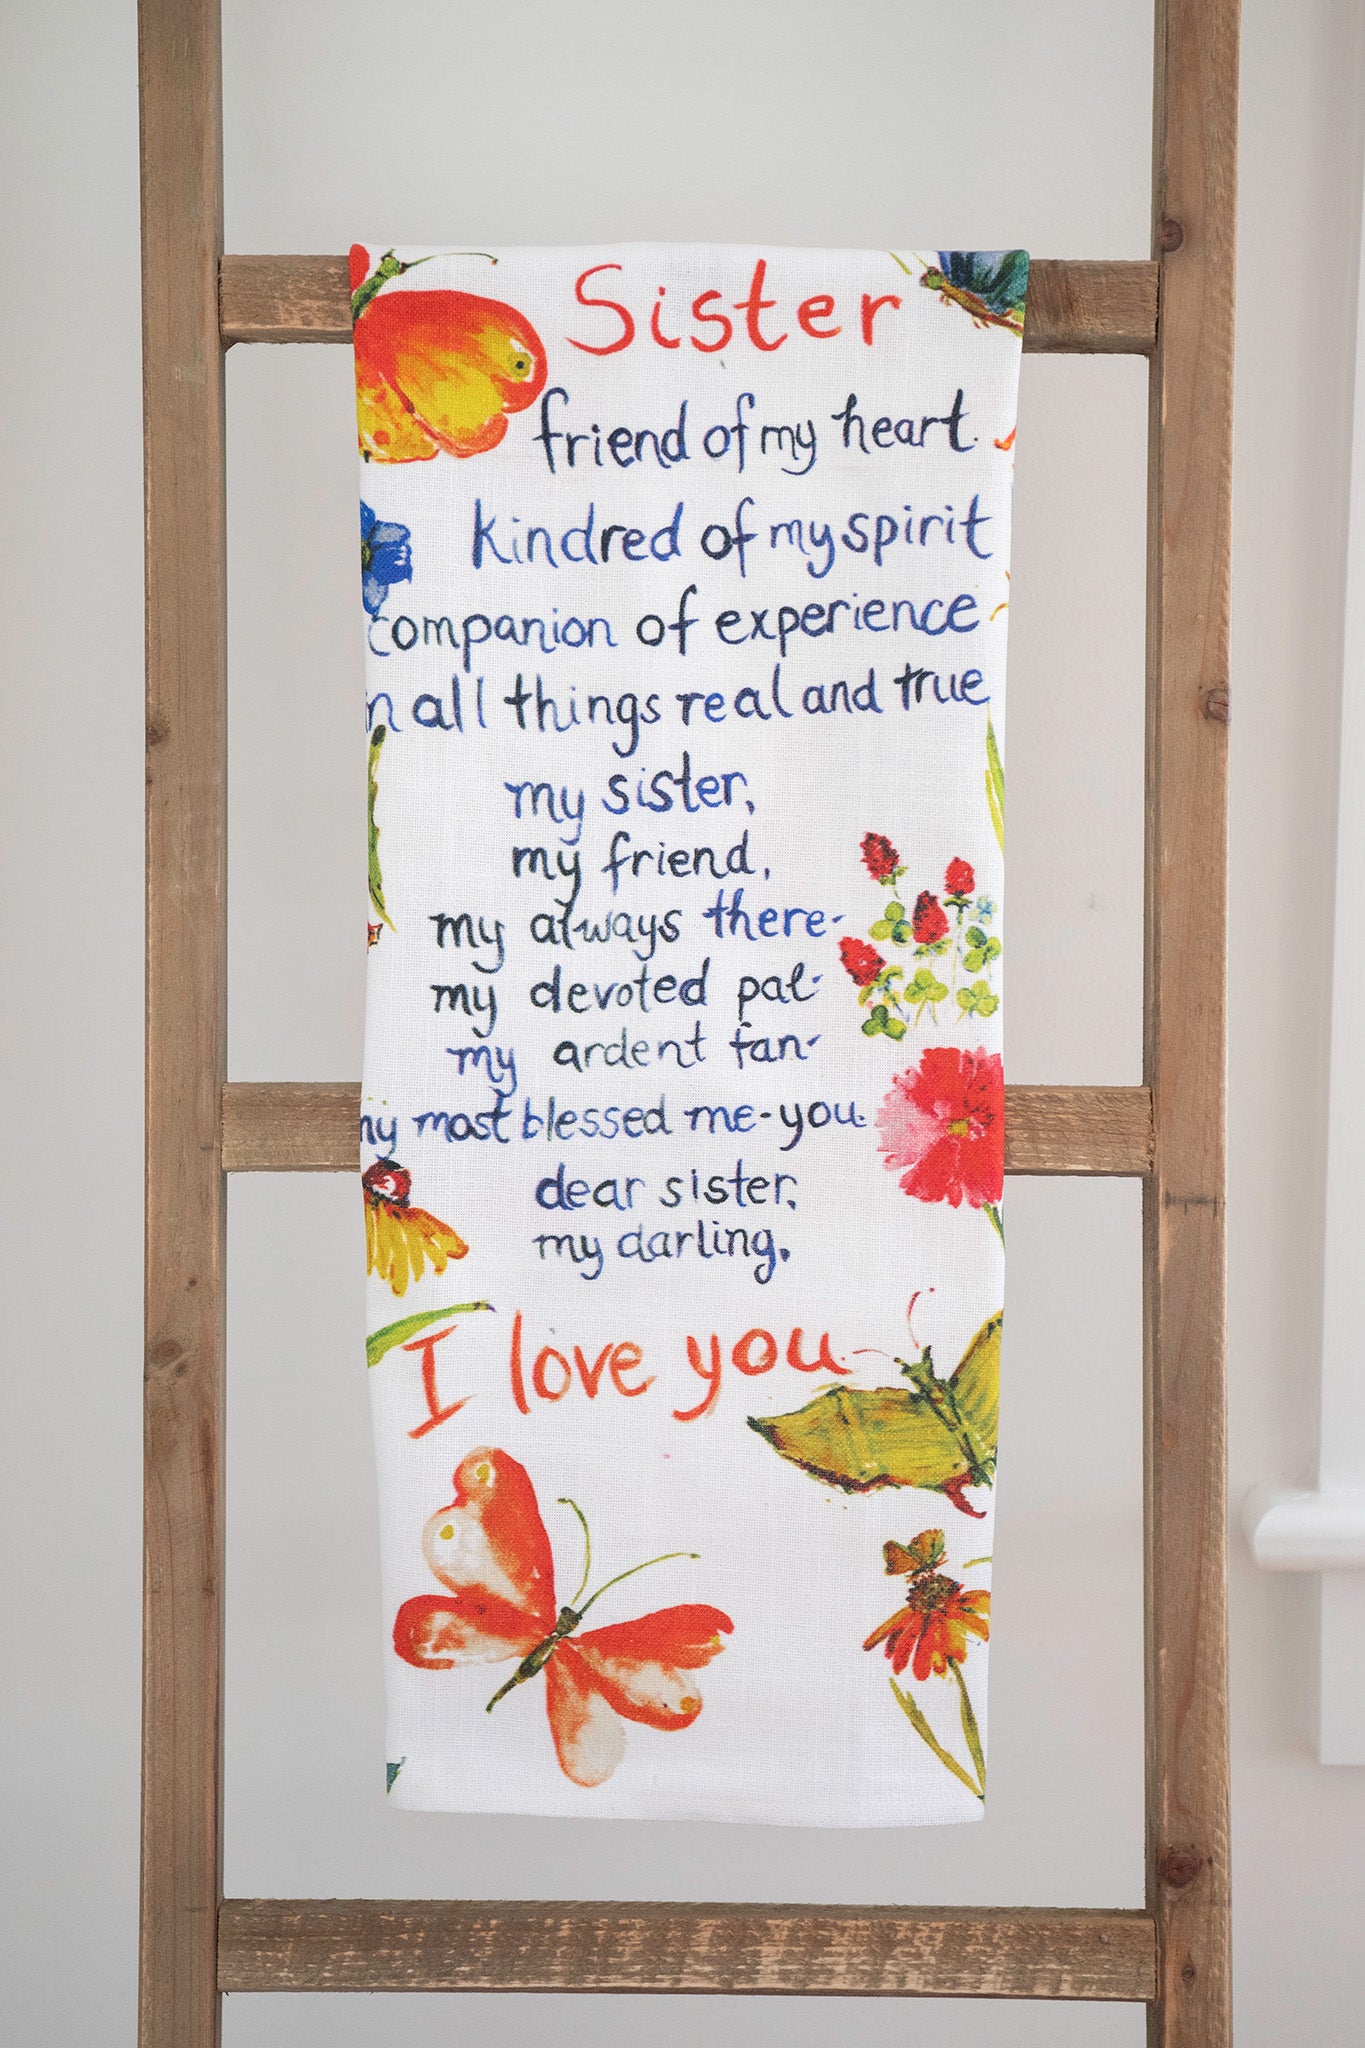 Sister
friend of my heart.
kindred of my spirit
companion of experience
in all things real and true
my sister,
my friend,
my always there-
my devoted pal-
my ardent fan-
my most blessed me-you.
dear sister,
my darling.
I love you.